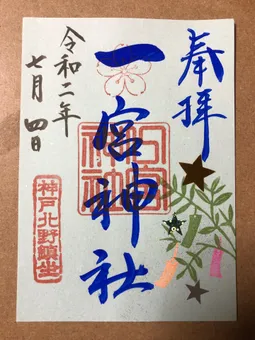 奉拝
一宮神社
令和二年
七月四日
神戸北野鎮坐